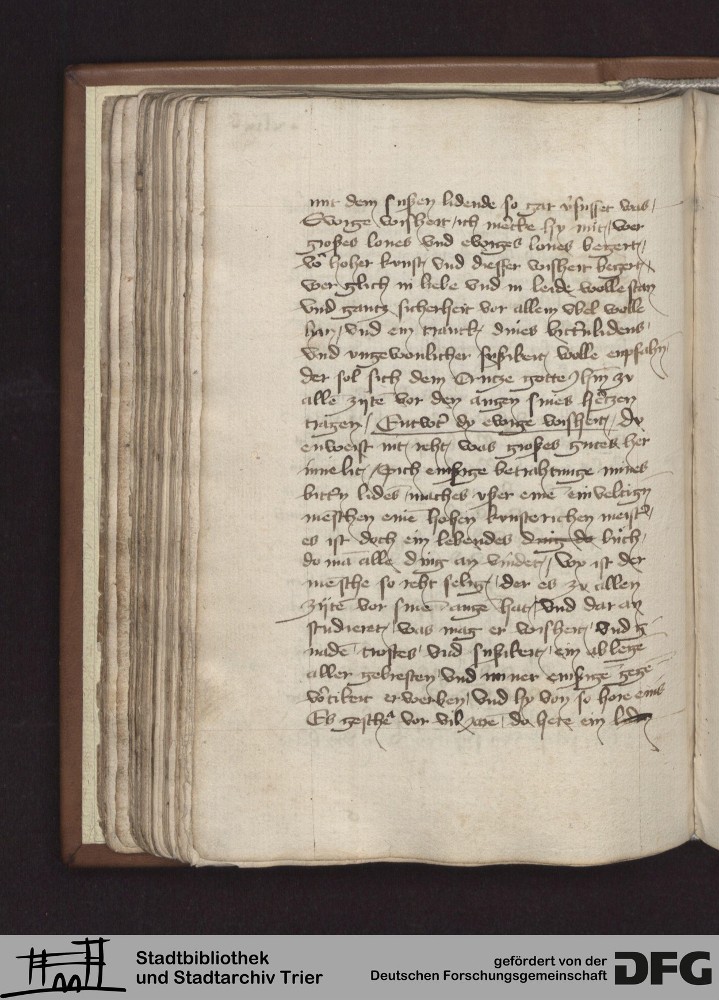 mit dem sußen lidende so gar v͛susset was /
Ewige wisheit / ich mercke hy mit / wer
großes lones vnd ewiges lones begert /
vō hoher kunst vnd diesser wisheit begert /
wer glich in liebe vnd in leide wolle stan
vnd gantz sicherheit vor allem vbel wolle
han / vnd ein tranck dines bitt͛n lidens
vnd vngewonlicher sußikeit wolle enpfahn
der sol sich dem Crutze gotte hin zu
alle zijte vor den augen sines hertzen
tragen / Entwort dy ewige wisheit / Du
enweist nit reht was großes gutes her
inne lit / Sich emßige betrahtunge mines
bitt͛n lides maches vßer eine einveltign
meschen eine hohen kunsterichen meist͛ /
es ist doch ein lebendes buch /
do mā alle ding an vindet / Wy ist der
mesche so reht selig / der es zu allen
zijte vor sine auge hat / vnd dar an
studieret / was mag er wisheit vnd g
nade trostes vnd sußikeit / ein ablege
aller gebresten vnd miner emßige gege
w͛tikeit erwerben / vnd hy von so hore eins
Es gesche vor vil jare / do hete ein
Stadtbibliothek
und Stadtarchiv Trier
gefördert von der
Deutschen Forschungsgemeinschaft
DFG